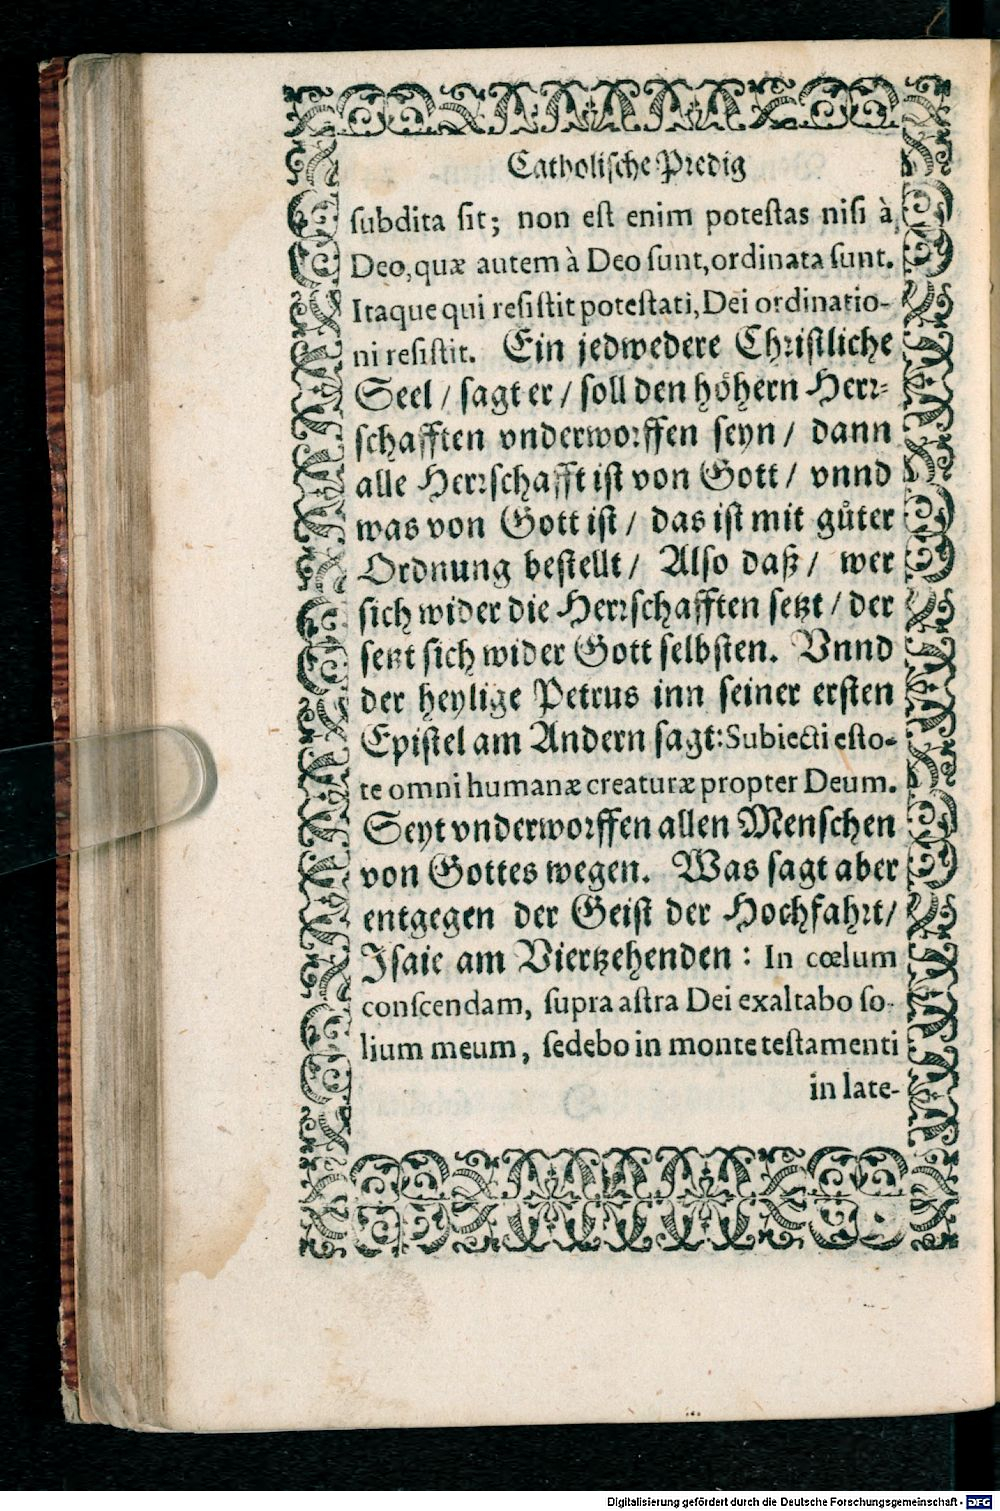 Catholische Predig
subdita sit; non est enim potestas nisi à
Deo, quæ autem à Deo sunt, ordinata sunt.
Itaque qui resistit potestati, Dei ordinatio-
ni resistit. Ein jedwedere Christliche
Seel / sagt er / soll den höhern Herr-
schafften vnderworffen seyn / dann
alle Herrschafft ist von Gott / vnnd
was von Gott ist / das ist mit gůter
Ordnung bestellt / Also daß / wer
sich wider die Herrschafften setzt / der
setzt sich wider Gott selbsten. Vnnd
der heylige Petrus inn seiner ersten
Epistel am Andern sagt: Subiecti esto-
te omni humanæ creaturæ propter Deum.
Seyt vnderworffen allen Menschen
von Gottes wegen. Was sagt aber
entgegen der Geist der Hochfahrt /
Isaie am Viertzehenden : In cœlum
conscendam, supra astra Dei exaltabo so-
lium meum, sedebo in monte testamenti
in late-
Digitalisierung gefördert durch die Deutsche Forschungsgemeinschaft - DFG